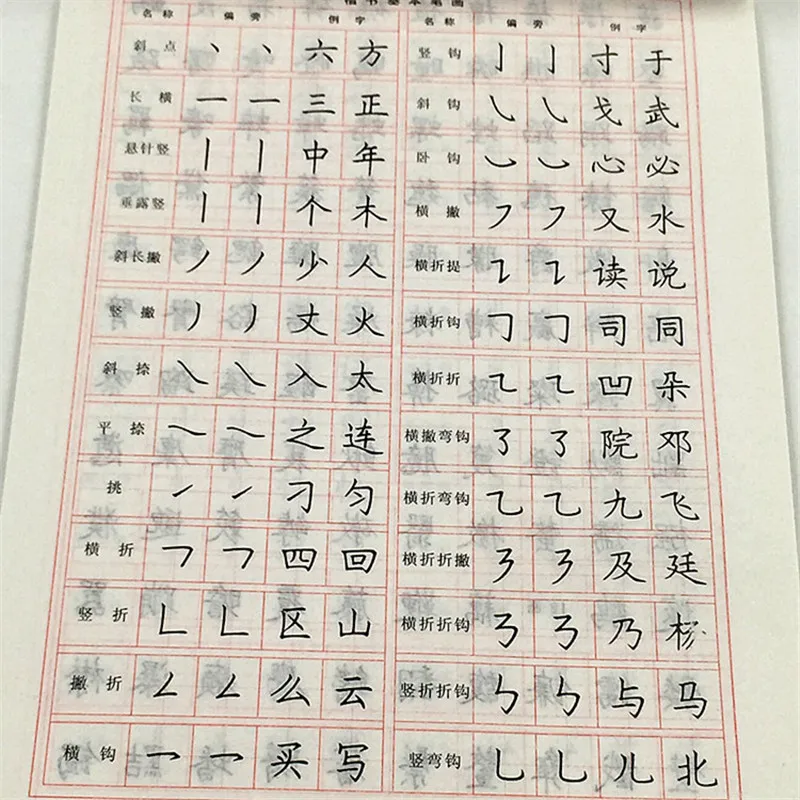 楷书基本笔画
名称 偏旁 例字 名称 偏旁 例字
斜点 丶 丶 六 方 竖钩 亅 亅 寸 于
长横 一 一 三 正 斜钩 ㇂ ㇂ 戈 武
悬针竖 丨 丨 中 年 卧钩 ㇃ ㇃ 心 必
垂露竖 丨 丨 个 木 横撇 ㇇ ㇇ 又 水
斜长撇 丿 丿 少 人 横折提 ㇊ ㇊ 读 说
竖撇 丿 丿 丈 火 横折钩 ㇆ ㇆ 司 同
斜捺 ㇏ ㇏ 入 太 横折折 ㇅ ㇅ 凹 朵
平捺 ㇏ ㇏ 之 连 横撇弯钩 ㇌ ㇌ 院 邓
挑 ㇀ ㇀ 刁 匀 横折弯钩 ㇈ ㇈ 九 飞
横折 ㇕ ㇕ 四 回 横折折撇 ㇋ ㇋ 及 廷
竖折 ㇗ ㇗ 区 山 横折折钩 ㇡ ㇡ 乃
撇折 ㇜ ㇜ 么 云 竖折折钩 ㇉ ㇉ 与 马
横钩 ㇖ ㇖ 买 写 竖弯钩 乚 乚 儿 北